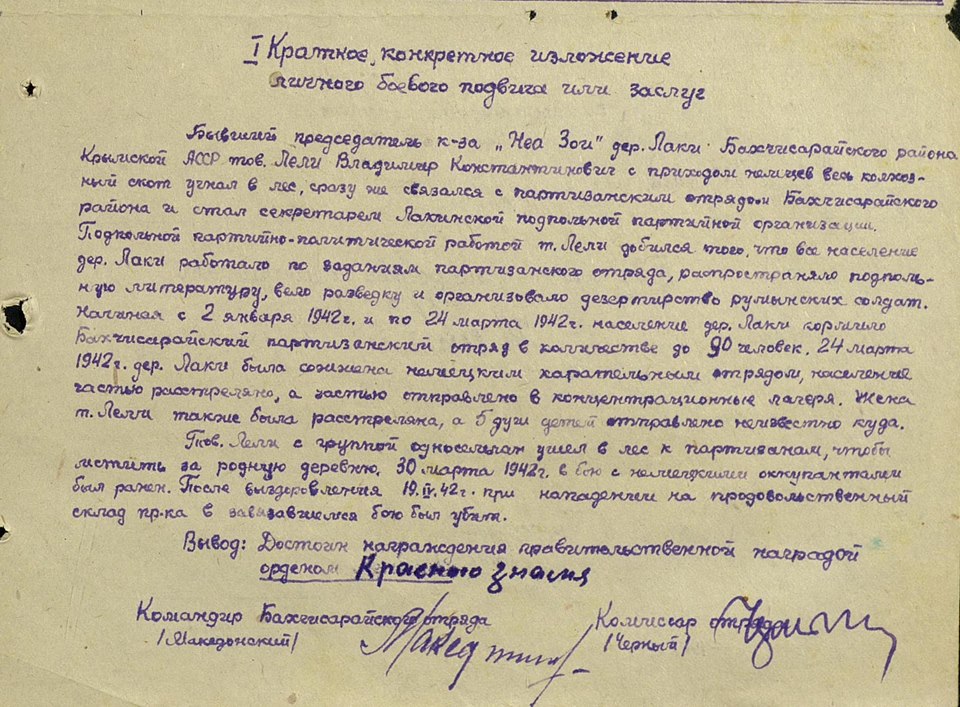 I Краткое, конкретное изложение
личного боевого подвига или заслуг
Бывший председатель к-за „Неа Зои" дер. Лаки Бахчисарайского района
Крымской АССР тов. Лели Владимир Константинович с приходом немцев весь колхоз-
ный скот угнал в лес, сразу же связался с партизанским отрядом Бахчисарайского
района и стал секретарем Лакинской подпольной партийной организации.
Подпольной партийно-политической работой т. Лели добился того, что все население
дер. Лаки работало по заданиям партизанского отряда, распространяло подполь-
ную литературу, вело разведку и организовало дезертирство румынских солдат.
Начиная с 2 января 1942 г. и по 24 марта 1942 г. население дер. Лаки кормило
Бахчисарайский партизанский отряд в количестве до 90 человек. 24 марта
1942 г. дер. Лаки была сожжена немецким карательным отрядом, население
частью расстреляно, а частью отправлено в концентрационные лагеря. Жена
т. Лели также была расстреляна, а 5 душ детей отправлено неизвестно куда.
Тов. Лели с группой односельчан ушел в лес к партизанам, чтобы
мстить за родную деревню. 30 марта 1942 г. в бою с немецкими оккупантами
был ранен. После выздоровления 19.IV.42 г. при нападении на продовольственный
склад пр-ка в завязавшемся бою был убит.
Вывод: Достоин награждения правительственной наградой
орденом Красного знамя
Командир Бахчисарайского отряда Комиссар отряда
/Македонский/ /Черный/